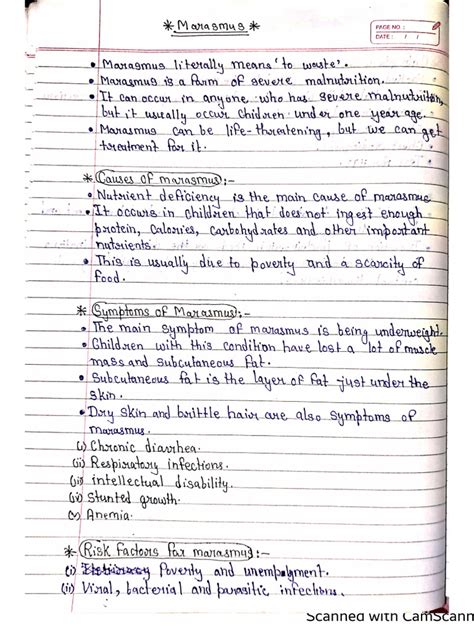 * Marasmus *
PAGE NO.:
DATE: / /
• Marasmus literally means 'to waste'.
• Marasmus is a form of severe malnutrition.
• It can occur in anyone who has severe malnutrition
but it usually occur children under one year age.
• Marasmus can be life-threatening, but we can get
treatment for it.
* Causes of marasmus:-
• Nutrient deficiency is the main cause of marasmus
• It occurs in children that does not ingest enough
protein, calories, carbohydrates and other important
nutrients.
• This is usually due to poverty and a scarcity of
food.
* Symptoms of Marasmus:-
• The main symptom of marasmus is being underweight.
• Children with this condition have lost a lot of muscle
mass and subcutaneous fat.
• Subcutaneous fat is the layer of fat just under the
skin.
• Dry skin and brittle hair are also symptoms of
marasmus.
(i) Chronic diarrhea.
(ii) Respiratory infections.
(iii) intellectual disability.
(iv) Stunted growth.
(v) Anemia.
* Risk factors for marasmus:-
(i) Poverty and unemployment.
(ii) Viral, bacterial and parasitic infections.
Scanned with CamScann